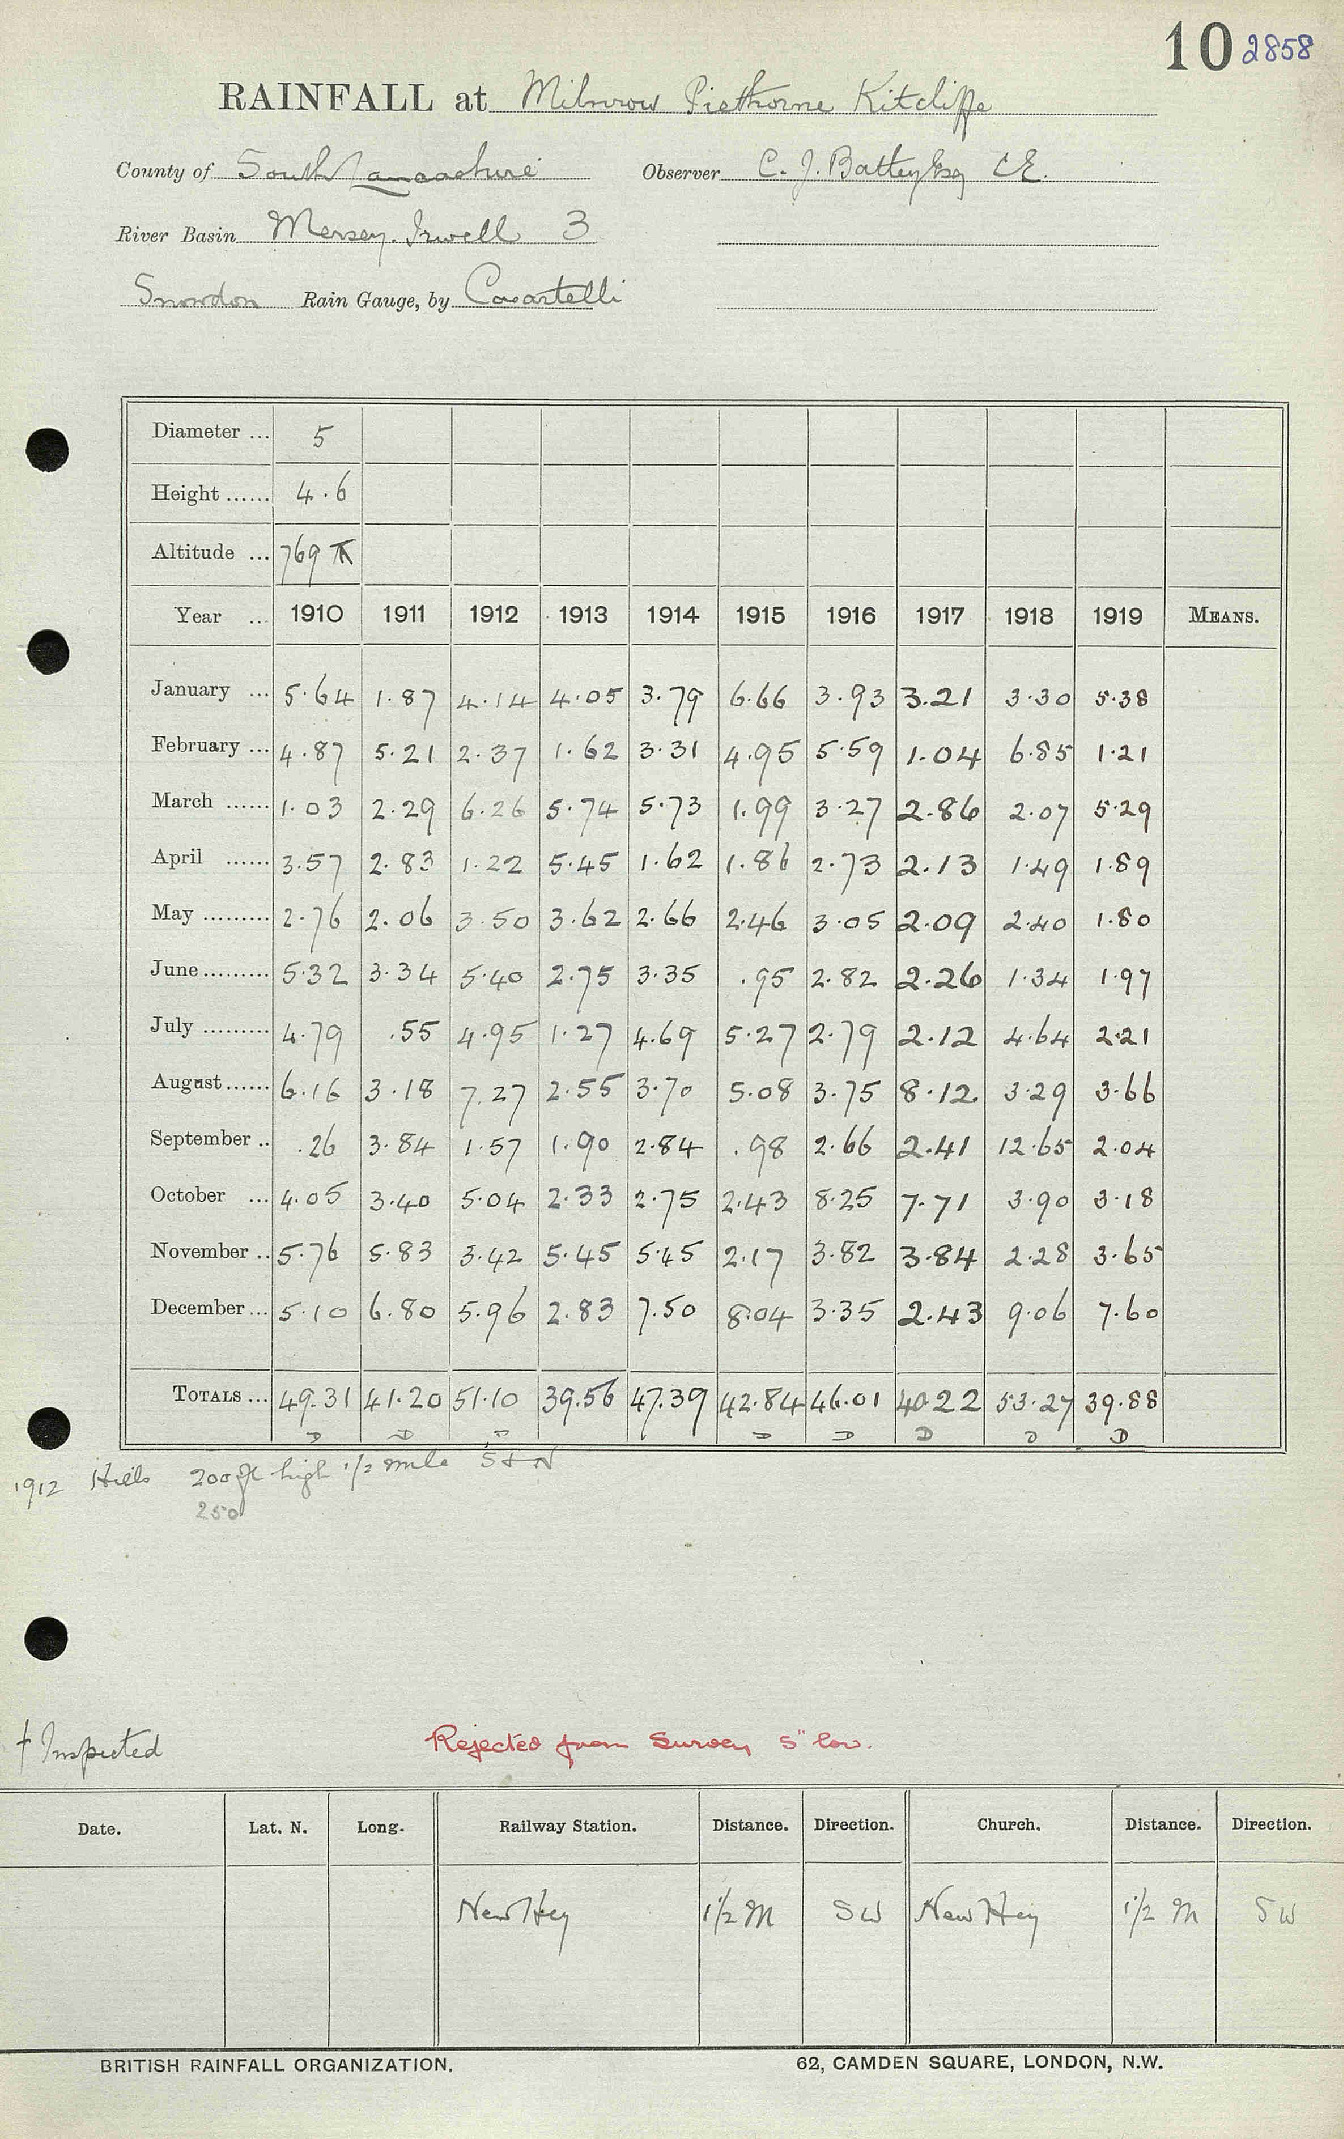 10 2858
RAINFALL at Milnrow Piethorne Kitcliffe
County of South Lancashire Observer C. J. Battey Esq CE.
River Basin Mersey. Irwell 3
Snowdon Rain Gauge, by Casartelli
Diameter ... 5
Height ...... 4.6
Altitude ... 769
Year ... 1910 1911 1912 1913 1914 1915 1916 1917 1918 1919 MEANS.
January ... 5.64 1.87 4.14 4.05 3.79 6.66 3.93 3.21 3.30 5.38
February ... 4.87 5.21 2.37 1.62 3.31 4.95 5.59 1.04 6.85 1.21
March ...... 1.03 2.29 6.26 5.74 5.73 1.99 3.27 2.86 2.07 5.29
April ...... 3.57 2.83 1.22 5.45 1.62 1.86 2.73 2.13 1.49 1.89
May ......... 2.76 2.06 3.50 3.62 2.66 2.46 3.05 2.09 2.40 1.80
June ......... 5.32 3.34 5.40 2.75 3.35 .95 2.82 2.26 1.34 1.97
July ......... 4.79 .55 4.95 1.27 4.69 5.27 2.79 2.12 4.64 2.21
August ...... 6.16 3.18 7.27 2.55 3.70 5.08 3.75 8.12 3.29 3.66
September .. .26 3.84 1.57 1.90 2.84 .98 2.66 2.41 12.65 2.04
October ... 4.05 3.40 5.04 2.33 2.75 2.43 8.25 7.71 3.90 3.18
November .. 5.76 5.83 3.42 5.45 5.45 2.17 3.82 3.84 2.28 3.65
December ... 5.10 6.80 5.96 2.83 7.50 8.04 3.35 2.43 9.06 7.60
TOTALS ... 49.31 41.20 51.10 39.56 47.39 42.84 46.01 40.22 53.27 39.88
D D D D D D D D
1912 Hills 200 ft high 1/2 mile S & N
250
† Inspected Rejected from Survey 5" low.
Date. Lat. N. Long. Railway Station. Distance. Direction. Church. Distance. Direction.
New Hey 1 1/2 M SW New Hey 1 1/2 M SW
BRITISH RAINFALL ORGANIZATION. 62, CAMDEN SQUARE, LONDON, N.W.